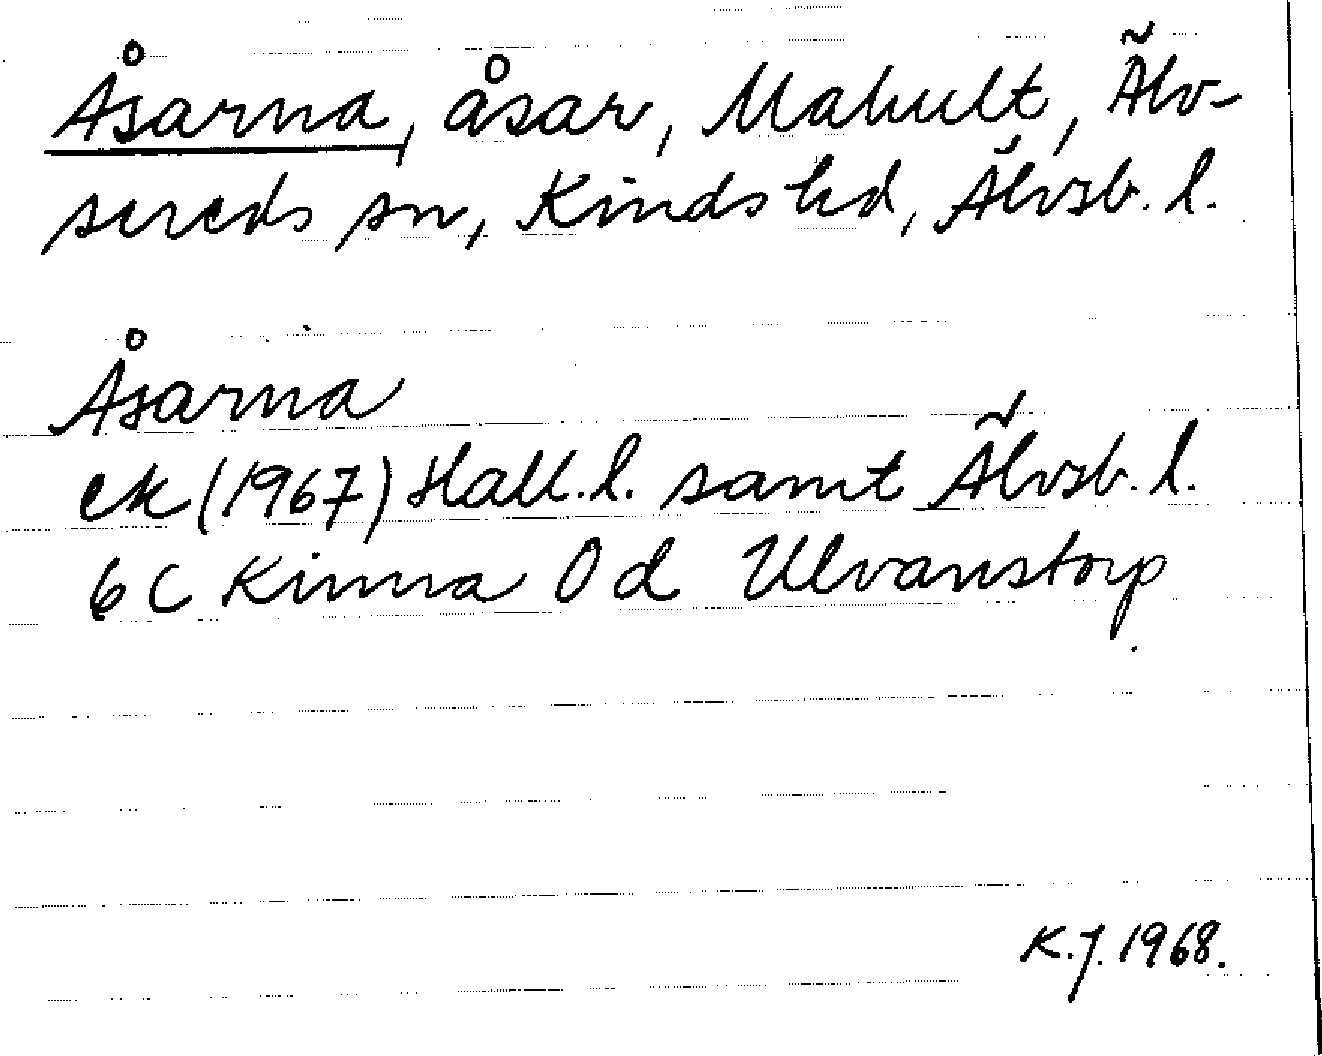 Åsarna, åsar, Mahult, Älv-
sereds sn, Kinds hd, Älvsb. l.
Åsarna
ek (1967) Hall. l. samt Älvsb. l.
6 C Kinna 0 d Ulvanstorp
K.J. 1968.